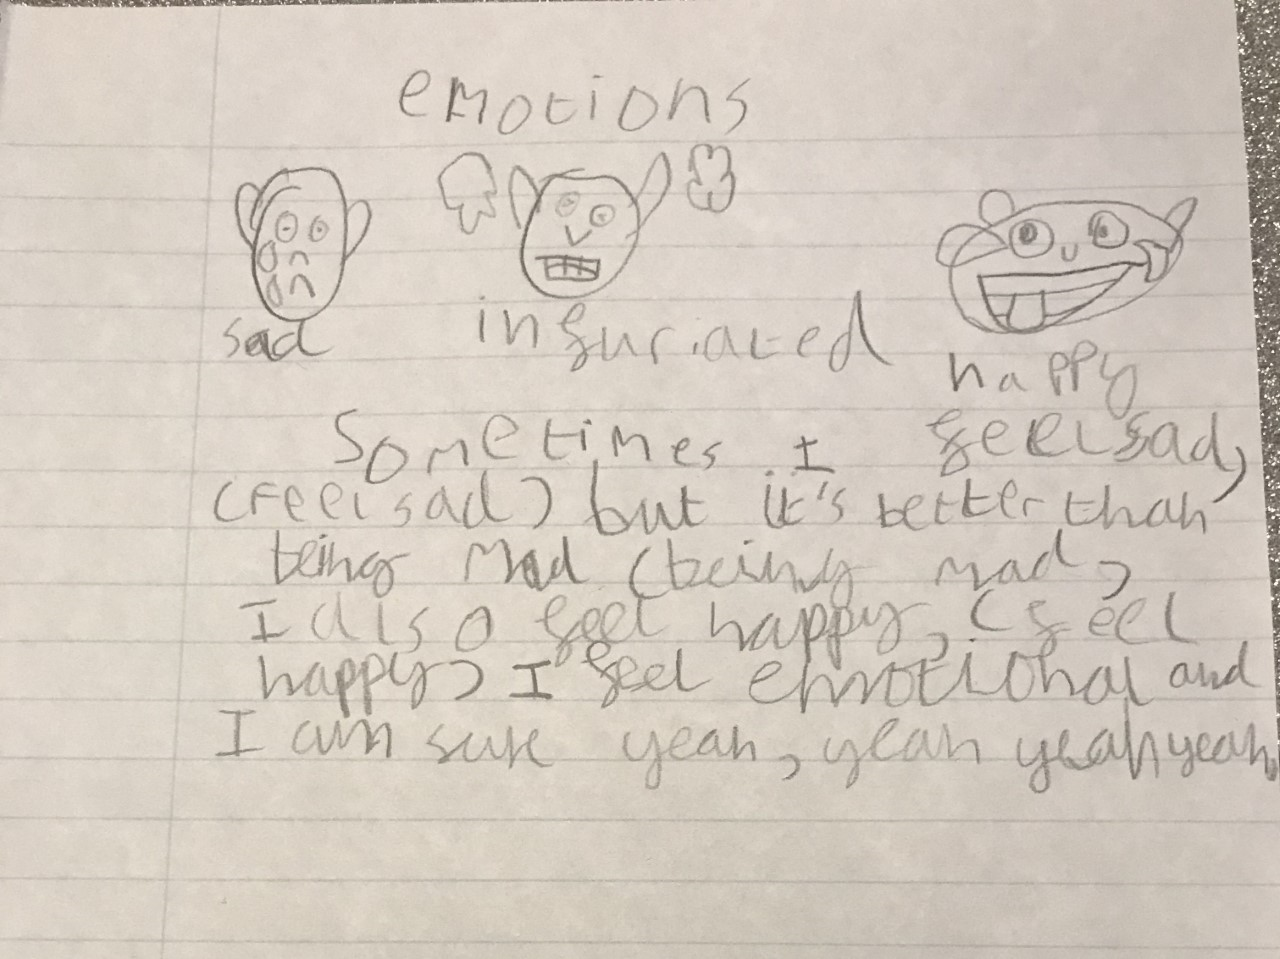 emotions
sad
infuriated
happy
Sometimes I feel sad,
(feel sad) but it's better than
being mad (being mad)
I also feel happy, (feel
happy) I feel emotional and
I am sure yeah, yeah yeah yeah,